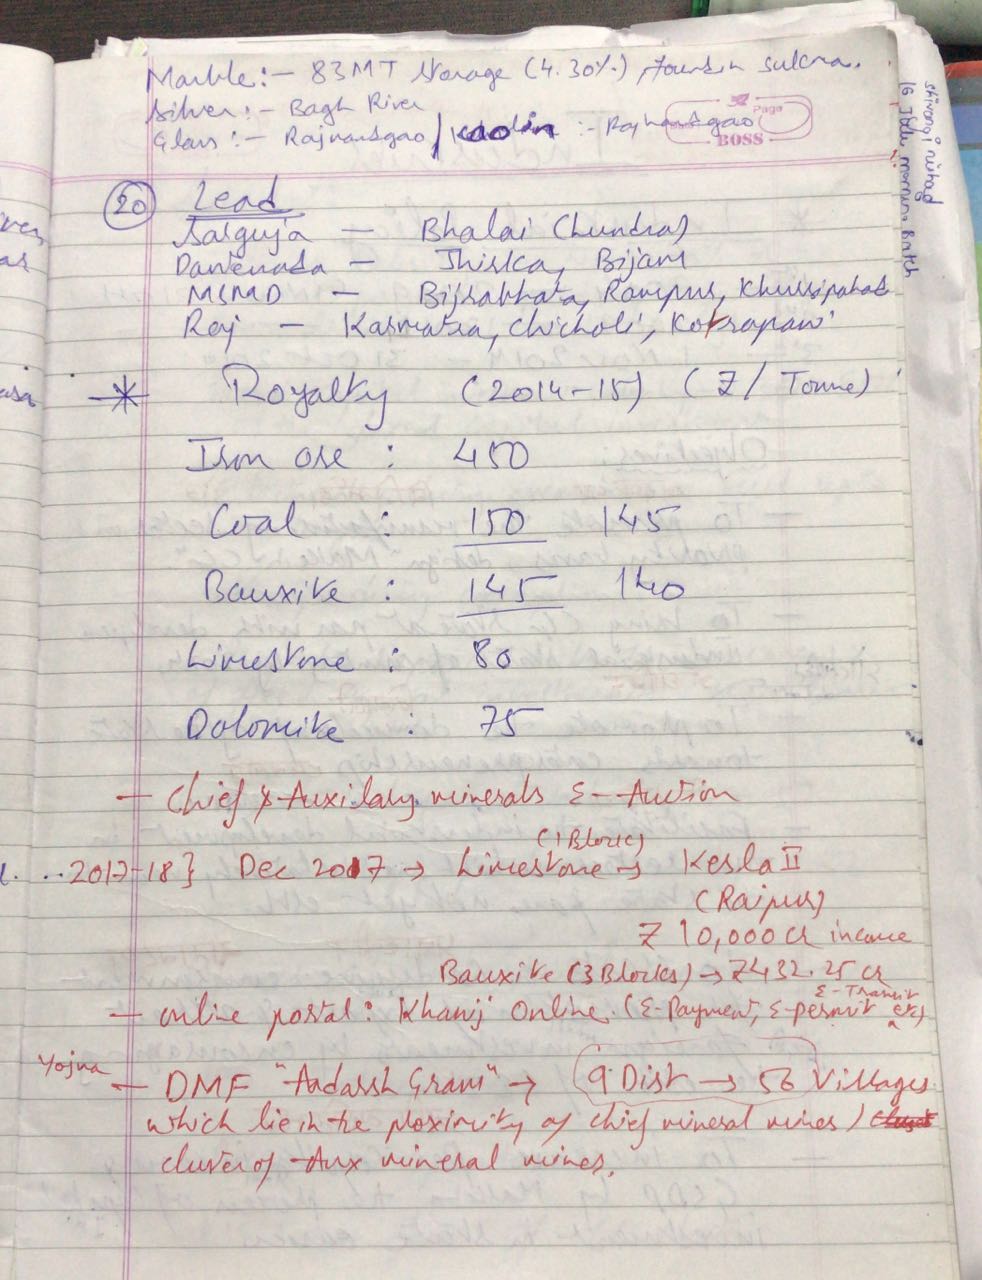 Marble:- 83MT storage (4.30%), found in sukma.
Silver:- Bagh River
Glass:- Rajnandgao / Kaolin :- Rajnandgao
Page
BOSS
shivangi
16 morning Batch
20 Lead
Sarguja — Bhalai (Lundra)
Dantewada — Jhirka, Bijam
MSMD — Bijrabhata, Rampur, Khursipahad
Raj — Karmatra, Chicholi,
* Royalty (2014-15) (₹/Tonne)
Iron ore : 450
Coal : 150 145
Bauxite : 145 140
Limestone : 80
Dolomite : 75
— Chief & Auxilary minerals E-Auction
2017-18} Dec 2017 → Limestone → Kesla II
(1 Block)
(Raipur)
₹ 10,000 cr income
Bauxite (3 Blocks) → ₹432.25 cr
— online portal: Khanij Online. (E-Payment, E-permit etc)
E-Transit
Yojna — DMF "Aadarsh Gram" → 9 Dist → 56 Villages
which lie in the ploximity of chief mineral mines /
cluster of Aux mineral mines.